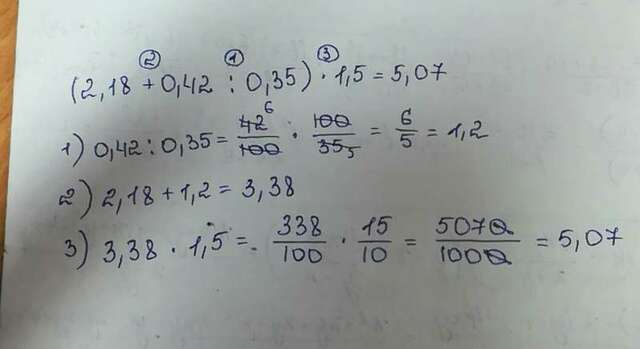 ② ① ③
(2,18 + 0,42 : 0,35) · 1,5 = 5,07
1) 0,42 : 0,35 = 42 6/100 · 100/35 5 = 6/5 = 1,2
2) 2,18 + 1,2 = 3,38
3) 3,38 · 1,5 = 338/100 · 15/10 = 5070/1000 = 5,07